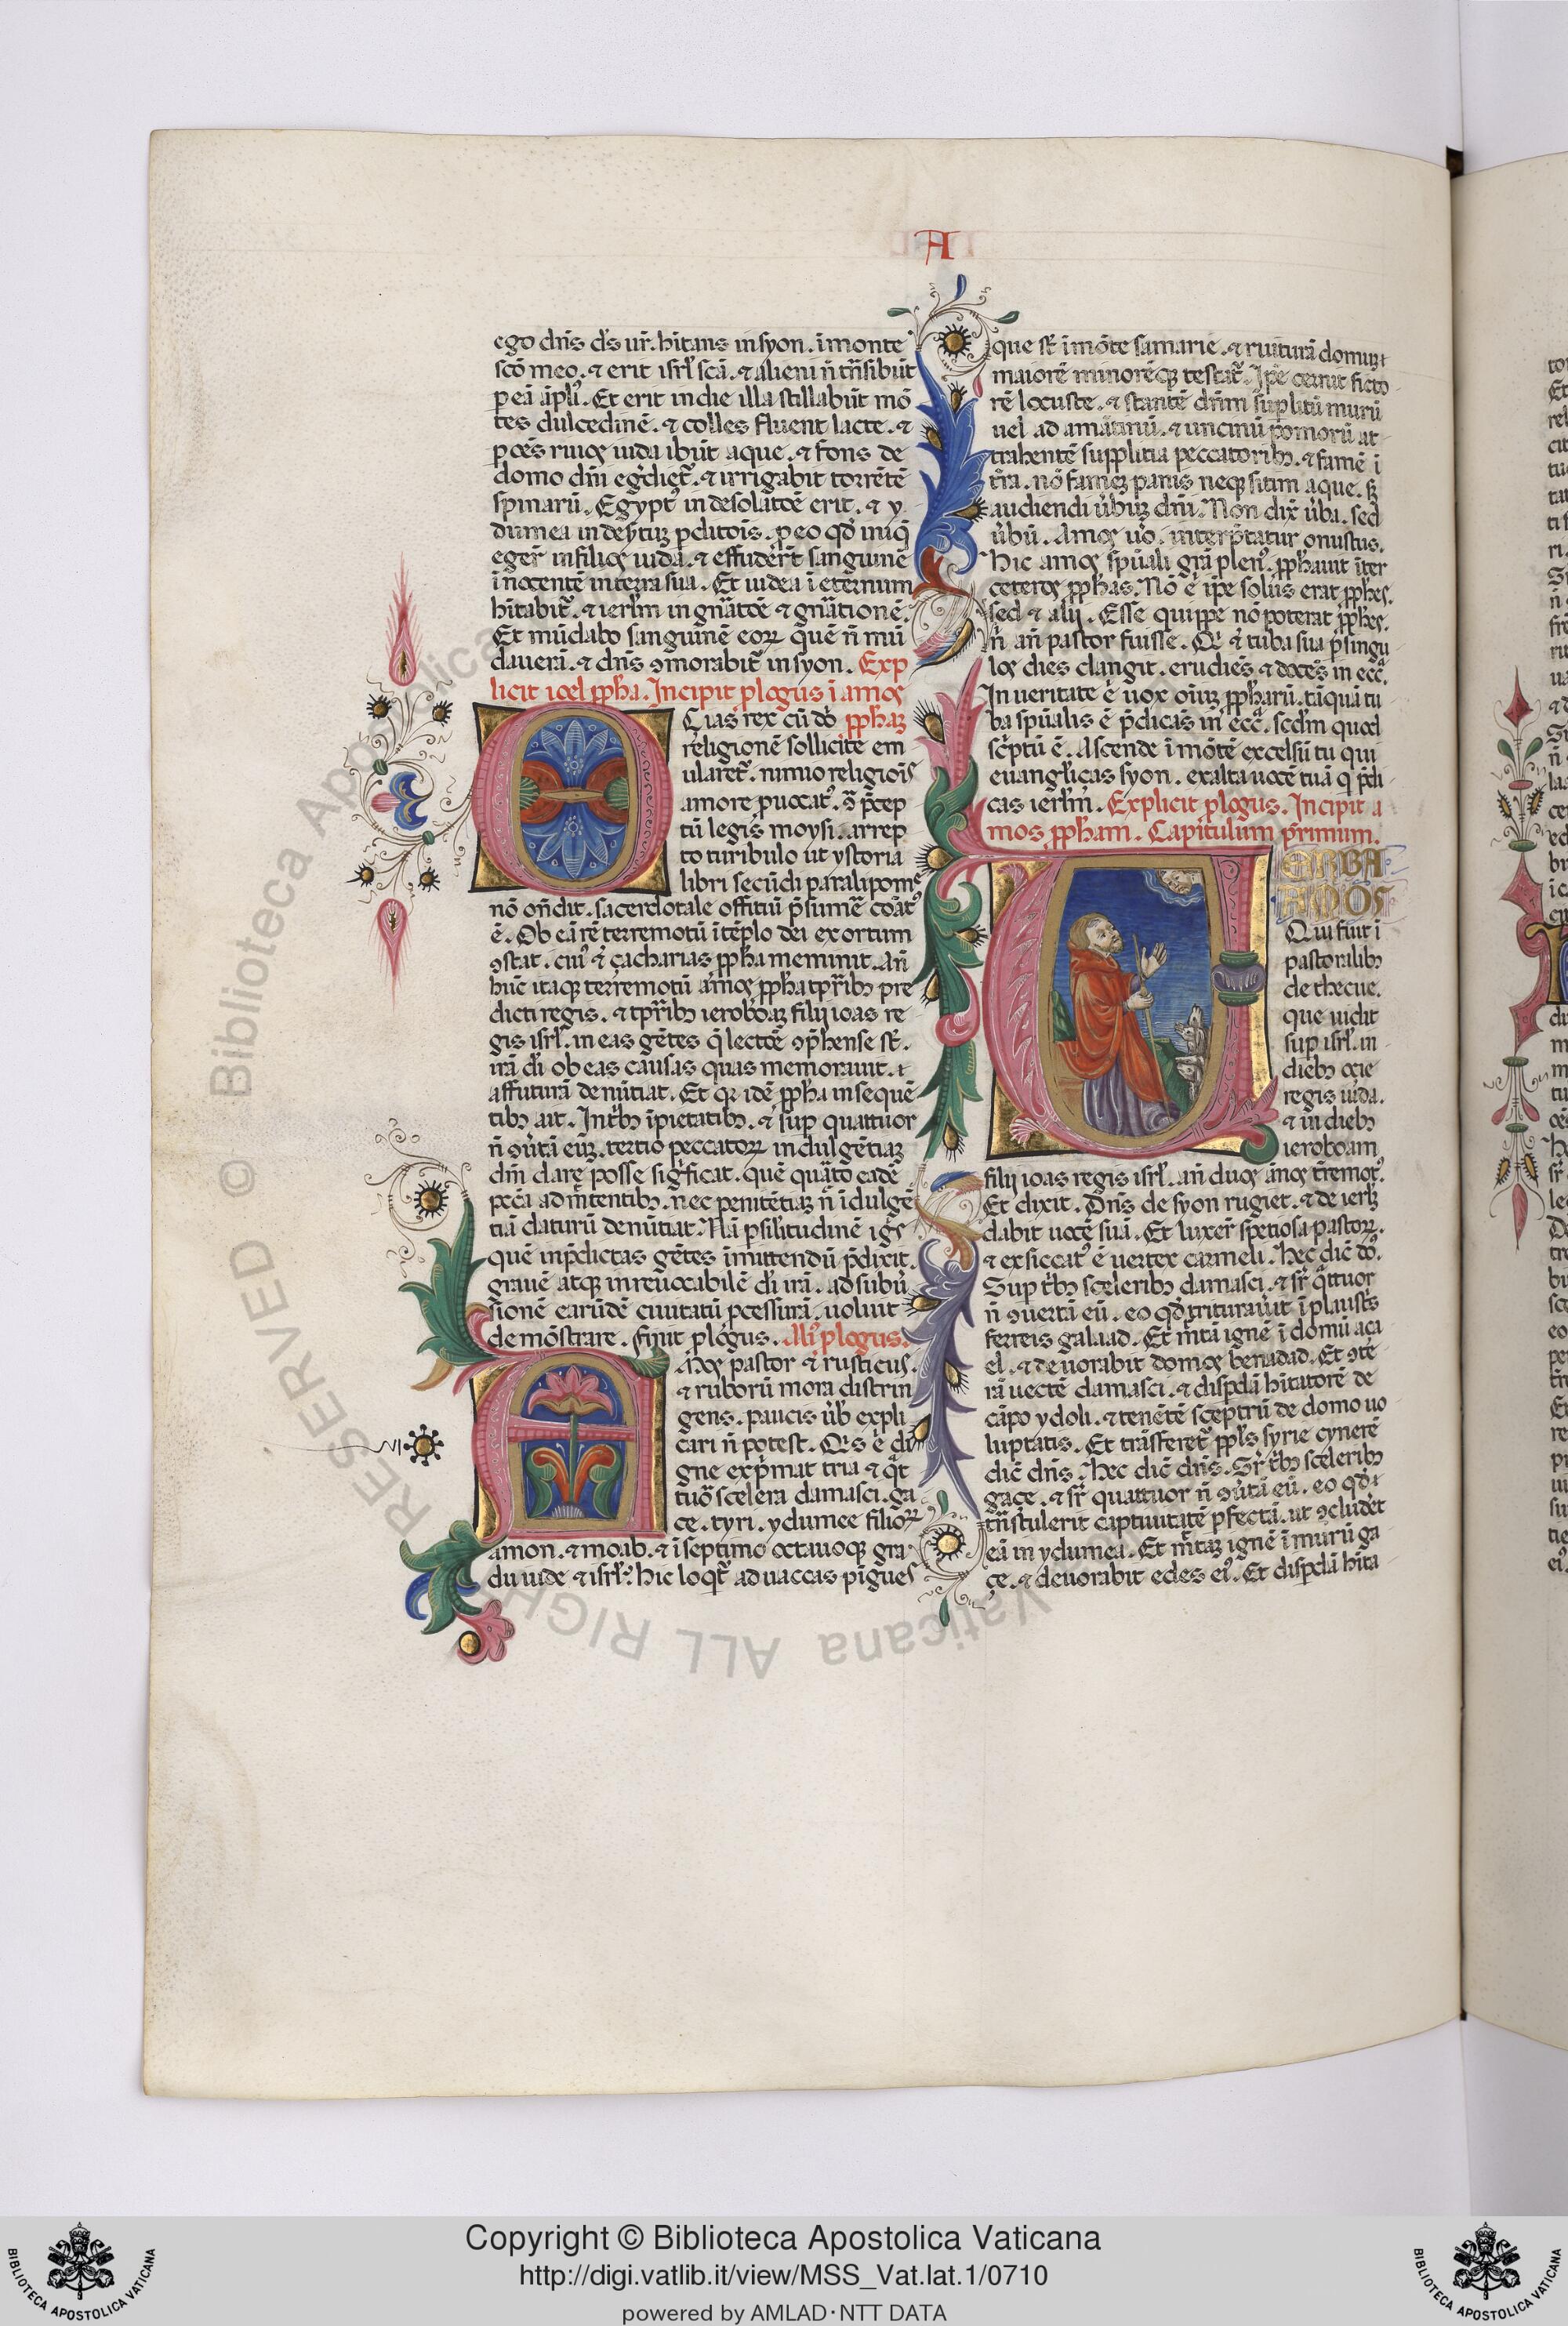 A
ego dn̄s ds̄ ur̄. hītans in syon. ī monte
scō meo. ⁊ erit isrl̄ scā. ⁊ alieni n̄ trāsibūt
p eā āpliꝰ. Et erit in die illa stillabūt mō
tes dulcedinē. ⁊ colles fluent lacte. ⁊
p oēs riuos iuda ibūt aque. ⁊ fons de
domo dn̄i egredietr̄. ⁊ irrigabit torrētē
spinarū. Egyptꝰ in desolatōē erit. ⁊ y
dumea in desertuꝫ pditoīs. p eo qd̄ iniq̄
egerīt in filios iuda. ⁊ effuderīt sanguinē
īnocentē in terra sua. Et iudea ī eternum
hītabitr̄. ⁊ ierl̄m in gn̄atōē ⁊ gn̄ationē.
Et mūdabo sanguinē eoꝝ quē n̄ mū
daueram. ⁊ dn̄s ꝯmorabitr̄ in syon. Exp
licit ioel ꝓpha. Incipit plogus ī amos
Oçias rex cū dō ꝓphaꝫ
religionē sollicite em
ularetr̄. nimio religiois
amore puocatꝰ. ꝯ p̄cep
tū legis moysi. arrep
to turibulo ut ystoria
libri secūdi paralipome
nō on̄dit. sacerdotale offitiū p̄sumē coātꝰ
ē. Ob eā rē terremotū ī tēplo dei exortum
ꝯstat. cuiꝰ ⁊ çacharias ꝓpha meminit. An̄
hūc itaqꝫ terremotū amos ꝓpha tp̄ribꝫ pre
dicti regis. ⁊ tp̄ribꝫ ieroboaꝫ filij ioas re
gis isrl̄. in eas gētes q̄ lectōē ꝯp̄hense st̄.
irā di ob eas causas quas memorauit. ⁊
affuturā denūtiat. Et qꝛ idē ꝓpha in sequē
tibꝫ ait. In tribꝫ īpietatibꝫ. ⁊ sup quattuor
n̄ ꝯūtā eūꝫ. tertio peccatoꝝ indulgētiaꝫ
dn̄m dare posse sigficat. quē quarto eadē
pccā admittentibꝫ. nec penitētiaꝫ n̄ īdulgē
tiā daturū denūtiat. Nā p similitudinē igs
quē in p̄dictas gētes īmittendū p̄dixit.
grauē atqꝫ inreuocabilē di irā. ad subuer
sionē earūdē ciuitatū pcessurā. uoluit
demōstrare. Finit plogus. Aliꝰ plogus.
Amos pastor ⁊ rusticus.
⁊ ruborū mora distrin
gens. paucis ūb expli
cari n̄ potest. Qs ē di
gne exp̄mat tria ⁊ q̄t
tuor scelera damasci. ga
çe. tyri. ydumee filioꝝ
amon. ⁊ moab. ⁊ ī septimo octauoqꝫ gra
du iude ⁊ isrl̄. hic loqtr̄ ad uaccas pīgues
que st̄ ī mōte samarie. ⁊ ruiturā domuꝫ
maiorē minorēqꝫ testatr̄. Ipe cernit ficto
rē locuste. ⁊ stantē dn̄m sup litū murū
uel ad amātinū. ⁊ uncinū pomorū at
trahentē supplitia peccatoribꝫ. ⁊ famē ī
tr̄ra. nō fameꝫ panis neqꝫ sitim aque. sꝫ
audiendi ūbuꝫ dn̄i. Non dix̄ ūba. sed
ūbū. Amos uo. interp̄tatur onustus.
Hic amos spūali grā plenꝰ. ꝓphauit īter
ceteros ꝓphas. Nō ē ipe solus erat ꝓphes.
sed ⁊ alij. Esse quippe nō poterat ꝓphes.
n̄ an̄ pastor fuisse. Qꝛ ⁊ tuba sua p singu
los dies clangit. erudiēs ⁊ docēs in ecc̄a.
In ueritate ē uox oīuꝫ ꝓpharū. tāquā tu
ba spūalis ē p̄dicās in ecc̄a. scd̄m quod
sc̄ptū ē. Ascende ī mōtē excelsū tu qui
euangl̄iças syon. exalta uocē tuā q p̄di
cas ierl̄m. Explicit plogus. Incipit a
mos ꝓpham. Capitulum primum.
UERBA
AMOS
Qui fuit ī
pastoralibꝫ
de thecue.
que uidit
sup isrl̄. in
diebꝫ oçie
regis iuda.
⁊ in diebꝫ
ieroboam
filij ioas regis isrl̄. an̄ duos ānos tr̄remotꝰ.
Et dixit. Dn̄s de syon rugiet. ⁊ de ierl̄m
dabit uocē suā. Et luxer̄t spetiosa pastoꝝ.
⁊ exsiccatꝰ ē uertex carmeli. Hec dic̄ dn̄s.
Sup tribꝫ sceleribꝫ damasci. ⁊ sr̄ q̄ttuor
n̄ ꝯuertā eū. eo qd̄ triturauit ī plaustris
ferreis galaad. Et mittā ignē ī domū aça
el. ⁊ deuorabit domos benadad. Et ꝯte
rā uectē damasci. ⁊ dispdā hītatorē de
cāpo ydoli. ⁊ tenētē sceptrū de domo uo
luptatis. Et trāsferetr̄ ppl̄s syrie cyrenē
dic̄ dn̄s. Hec dic̄ dn̄s. Sr̄ tribꝫ sceleribꝫ
gaçe. ⁊ sr̄ quattuor n̄ ꝯūtā eū. eo qd̄
trāstulerit captiuitatē pfectā. ut ꝯcluderet
eā in ydumea. Et mittaꝫ ignē ī murū ga
çe. ⁊ deuorabit edes eiꝰ. Et dispdā hīta
Copyright © Biblioteca Apostolica Vaticana
http://digi.vatlib.it/view/MSS_Vat.lat.1/0710
powered by AMLAD·NTT DATA
BIBLIOTECA APOSTOLICA VATICANA
BIBLIOTECA APOSTOLICA VATICANA
© Biblioteca Apostolica Vaticana ALL RIGHTS RESERVED